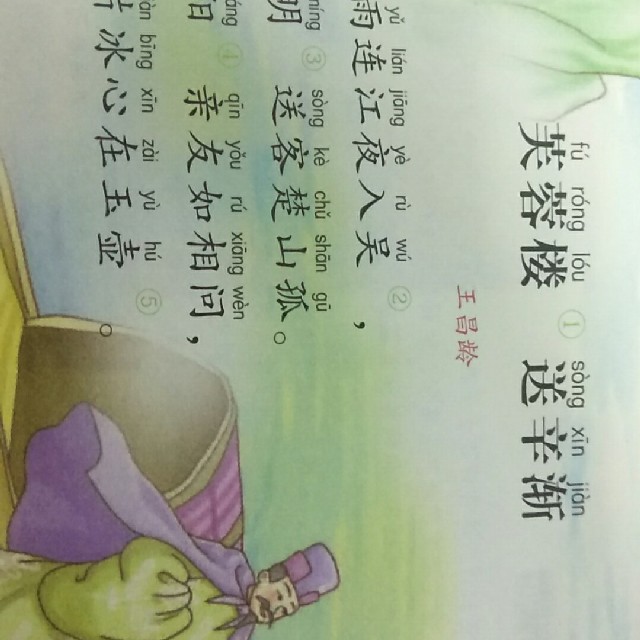 fú róng lóu sòng xīn jiàn
芙蓉楼 ① 送辛渐
王昌龄
yǔ lián jiāng yè rù wú
雨连江夜入吴 ②，
míng sòng kè chǔ shān gū
明 ③ 送客楚山孤。
qīn yǒu rú xiāng wèn
④ 亲友如相问，
bīng xīn zài yù hú
冰心在玉壶 ⑤。